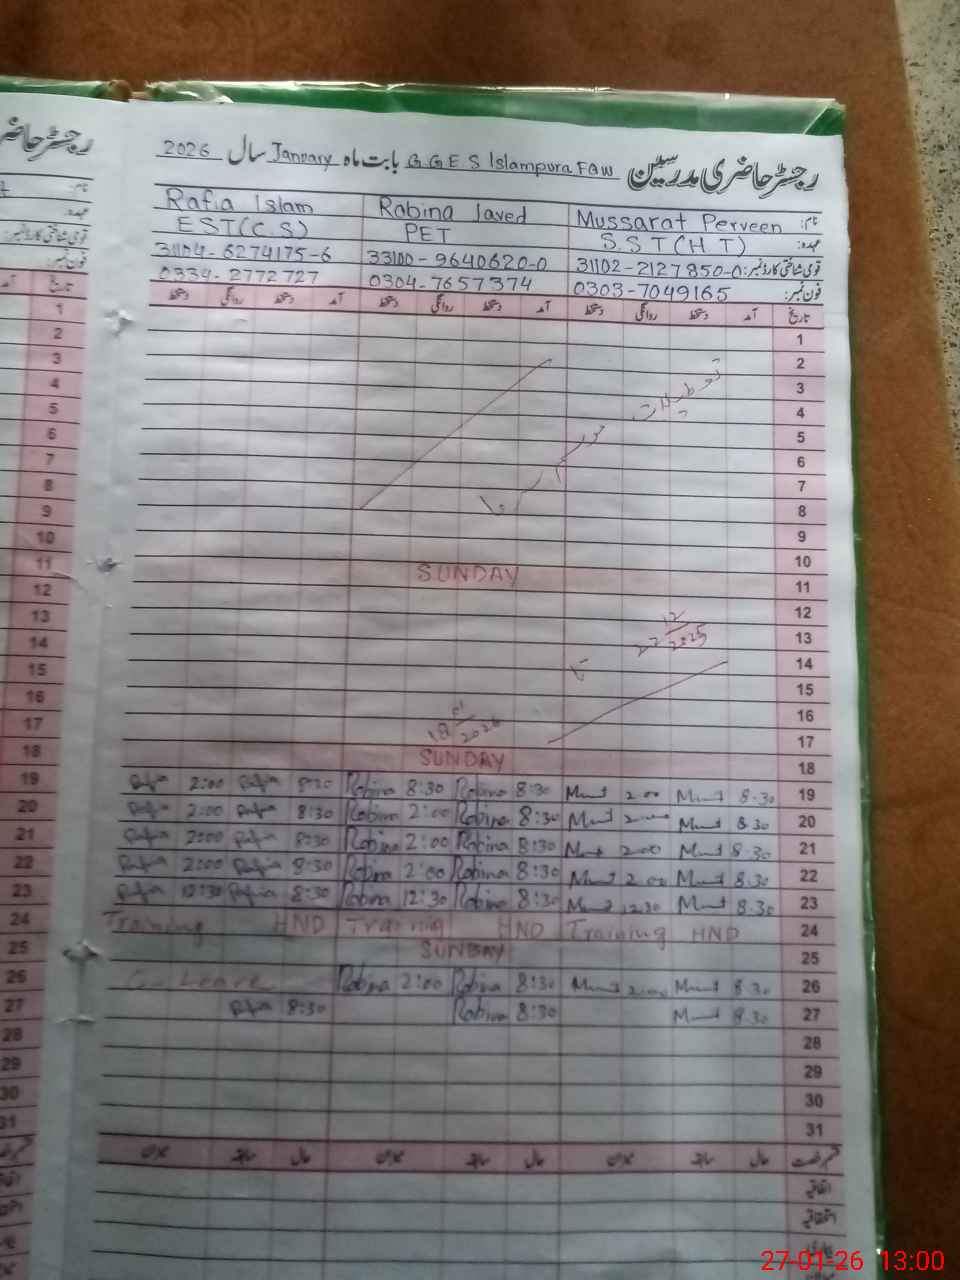 رجسٹر حاضری مدرسین G.G.E.S Islampura FAW بابت ماہ January سال 2026
نام: Mussarat Perveen Robina Javed Rafia Islam
عہدہ: S.S.T(H.T) PET EST(C.S)
قومی شناختی کارڈ نمبر: 31102-2127850-0 33100-9640620-0 31104-6274175-6
فون نمبر: 0303-7049165 0304-7657374 0334-2772727
تاریخ آمد دستخط روانگی دستخط آمد دستخط روانگی دستخط آمد دستخط روانگی دستخط
1
2
3
4
5
6
7
8
9
10
11 SUNDAY
12
13
14
15
16
17
تعطیلات موسم سرما
22 12/2025
تا
18 01/2026
18 SUNDAY
19 Rafia 2:00 Rafia 8:30 Robina 8:30 Robina 8:30 2:00 8:30 19
20 Rafia 2:00 Rafia 8:30 Robina 2:00 Robina 8:30 2:00 8:30 20
21 Rafia 2:00 Rafia 8:30 Robina 2:00 Robina 8:30 2:00 8:30 21
22 Rafia 2:00 Rafia 8:30 Robina 2:00 Robina 8:30 2:00 8:30 22
23 Rafia 12:30 Rafia 8:30 Robina 12:30 Robina 8:30 12:30 8:30 23
24 Training HND Training HND Training HND 24
25 SUNDAY 25
26 Leave Robina 2:00 Robina 8:30 2:00 8:30 26
27 Rafia 8:30 Robina 8:30 8:30 27
28
29
30
31
قسم رخصت حال سابقہ میزان حال سابقہ میزان حال سابقہ میزان
اتفاقیہ
استحقاقیہ
27-01-26 13:00